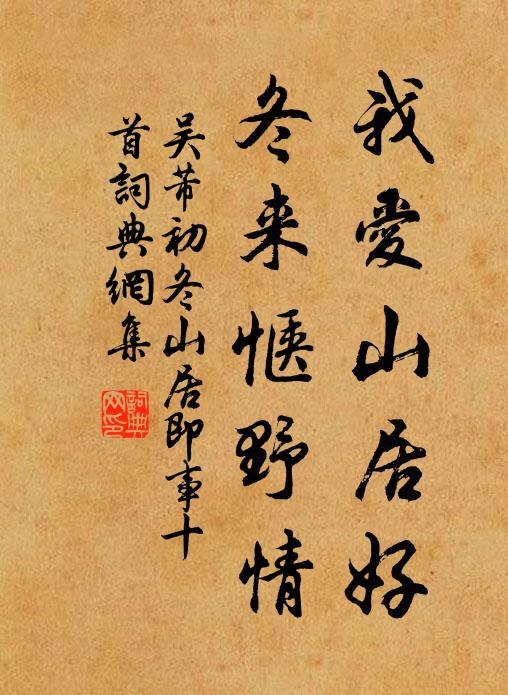 我愛山居好
冬来惬野情
吴芾初冬山居即事十
首詞典網集
詞典
网印